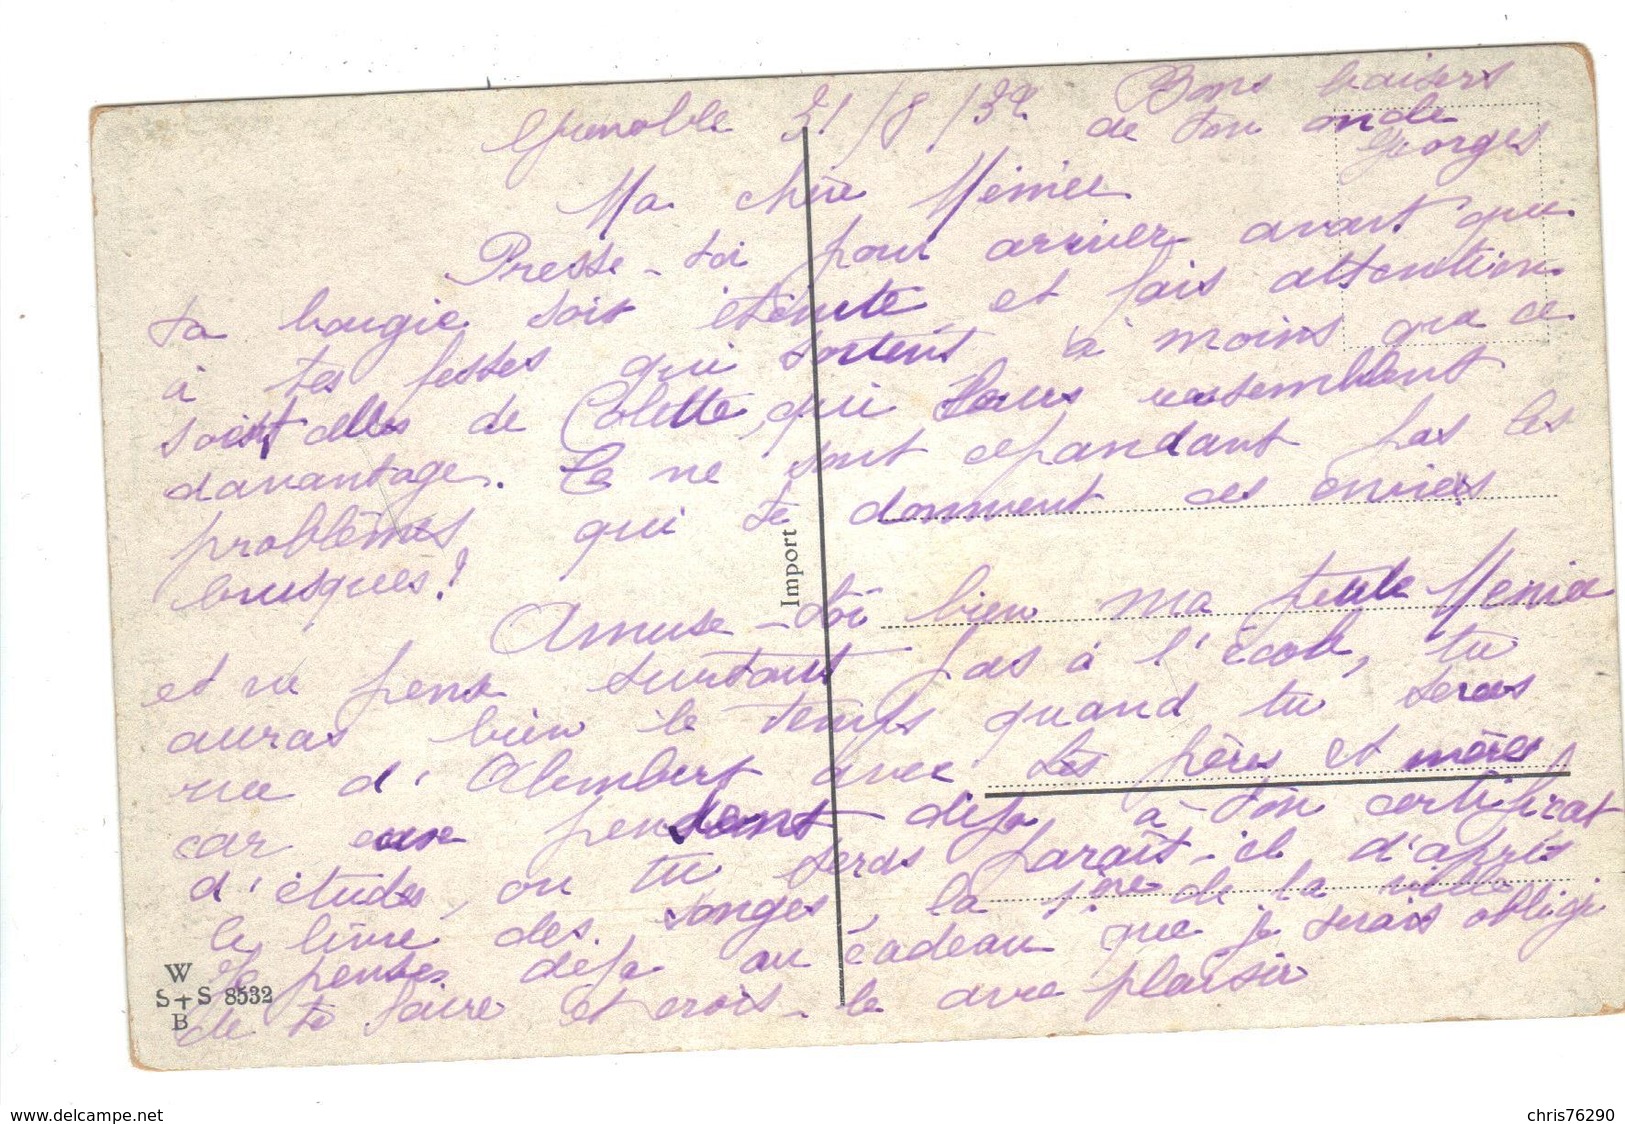 Grenoble 31/8/32 Bons baisers
de ton oncle
Georges
Ma chère Ménie
Presse-toi pour arriver avant que
ta bougie soit éteinte et fais attention
à tes fesses qui sortent à moins que ce
soit celles de Colette, qui vous rassemblent
davantage. Ce ne sont cependant pas les
problèmes qui te donnent ces envies
brusques!
Amuse-toi bien ma petite Ménie
et ne pense surtout pas à l'école, tu
auras bien le temps quand tu seras
rue d'Alembert avec les pères et mères
car eux pensent déjà à ton certificat
d'études, ou tu seras parait-il d'après
le livre des songes, la 1ère de la ville
Je penses déja au cadeau que je serais obligé
de te faire et crois-le avec plaisir
Import
W
S+S 8532
B
www.delcampe.net
chris76290